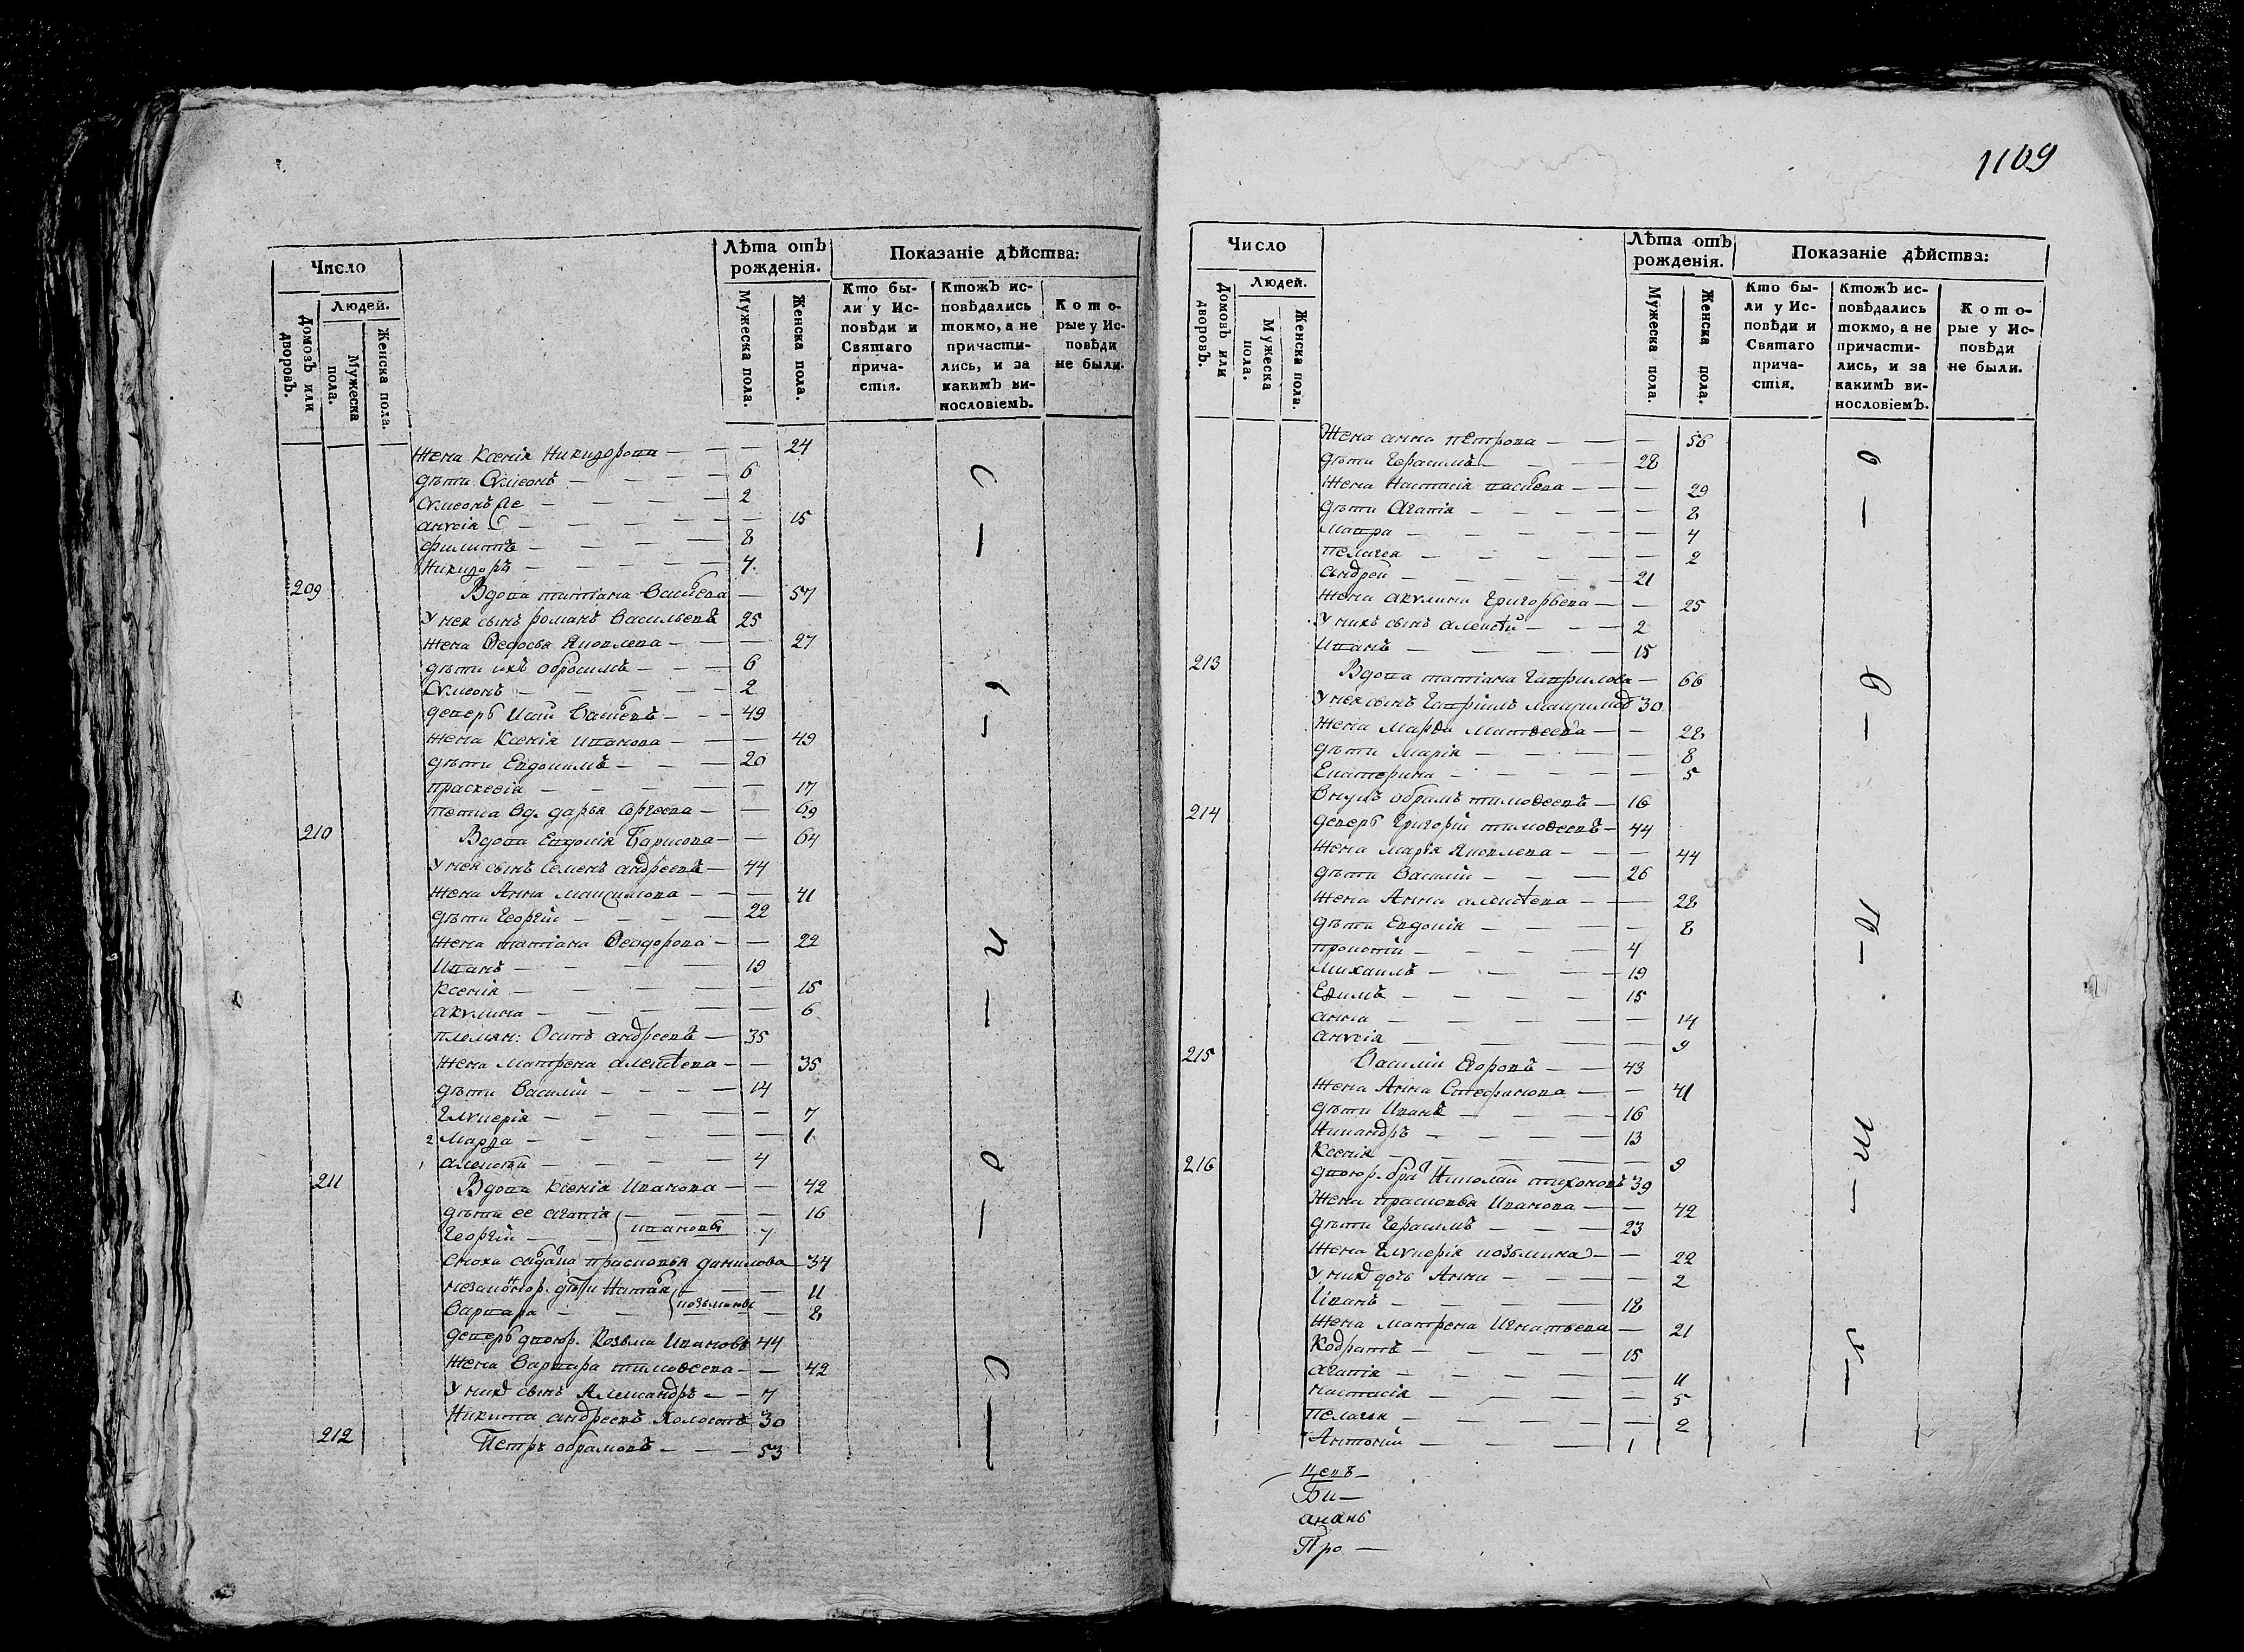 1109
Число
Лѣта отъ рожденія.
Показаніе дѣйства:
Домовъ или дворовъ.
Людей.
Мужеска пола.
Женска пола.
Мужеска пола.
Женска пола.
Кто были у Исповѣди и Святаго причастія.
Ктожъ исповѣдались токмо, а не причастились, и за какимъ винословіемъ.
Которые у Исповѣди не были.
Жена Ксенія Никифорова — — — 24
дѣти Сѵмеонъ — — — 6
Сѵмеонъ же — — — 2
анѵсія — — — 15
филиппъ — — — 8
Никифоръ — — — 4
209 Вдова татіана Васильева — 57
У нея сынъ романъ Васильевъ 25
жена Ѳедосья Яковлева — — 27
дѣти ихъ обросимъ — — 6
Сѵмеонъ — — — 2
деверь Васильевъ — — 49
жена Ксенія иванова — — 49
дѣти Евдокимъ — — 20
праскевіа — — — 17
тетка вд. дарья сергеева — — 69
210 Вдова Евдокія Барисова — — 64
У нея сынъ Семенъ андреевъ — 44
жена Анна максимова — — 41
дѣти Георгій — — — 22
жена татіана Ѳеодорова — — 22
Иванъ — — — 19
ксенія — — — 15
акѵлина — — — 6
племян: Осипъ андреевъ — 35
жена матрена алексѣева — — 35
дѣти Василій — — — 14
Глѵкерія — — — 7
2 Марѳа — — — 1
1 — — — 4
211 Вдова ксенія Иванова — — 42
дѣти ее агапія — — — 16
Георгій — — ивановы 7
Сноха прасковья данилова — 34
дѣти Наталья — — 11
варвара — — козьмины — 8
деверь двоюр. Козьма Ивановъ 44
жена варвара тимоѳеева — — 42
У них сынъ Александръ — — 7
Никита андреевъ холостъ 30
212 Петръ обрамовъ — — — 53
Число
Лѣта отъ рожденія.
Показаніе дѣйства:
Домовъ или дворовъ.
Людей.
Мужеска пола.
Женска пола.
Мужеска пола.
Женска пола.
Кто были у Исповѣди и Святаго причастія.
Ктожъ исповѣдались токмо, а не причастились, и за какимъ винословіемъ.
Которые у Исповѣди не были.
Жена анна петрова — — — 56
дѣти Герасимъ — — — 28
жена настасія — — — 29
дѣти Агапія — — — 8
мавра — — — 4
пелагея — — — 2
андрей — — — 21
жена акѵлина григорьева — — 25
У нихъ сынъ алексѣй — — — 2
Иванъ — — — 15
213 Вдова татіана гаврилова — 66
У нея сынъ Гавріилъ 30
жена Марѳа Матвеева — — 28
дѣти марія — — — 8
Екатерина — — — 5
Внукъ обрамъ тимоѳеевъ — 16
214 деверь григорій тимоѳеевъ — 44
жена марія Яковлева — — 44
дѣти Василій — — — 26
жена Анна алексѣева — — 28
дѣти Евдокія — — — 8
прокопій — — — 4
михаилъ — — — 19
Ефимъ — — — 15
анна — — — 14
анѵсія — — — 9
215 Василій Егоровъ — — 43
жена Анна Стефанова — — 41
дѣти Иванъ — — — 16
Никандръ — — — 13
Ксенія — — — 9
216 двоюр. бра Николай тихоновъ 39
жена прасковья Иванова — — 42
дѣти Герасимъ — — — 23
жена Глѵкерія козьмина — — 22
У них дочь Анна — — — 2
Иванъ — — — 18
жена матрена Игнатьева — 21
Кодратъ — — — 15
агапія — — — 11
настасія — — — 5
пелагея — — — 2
Антоній — — — 1
цевъ —
Би —
анань
Про —